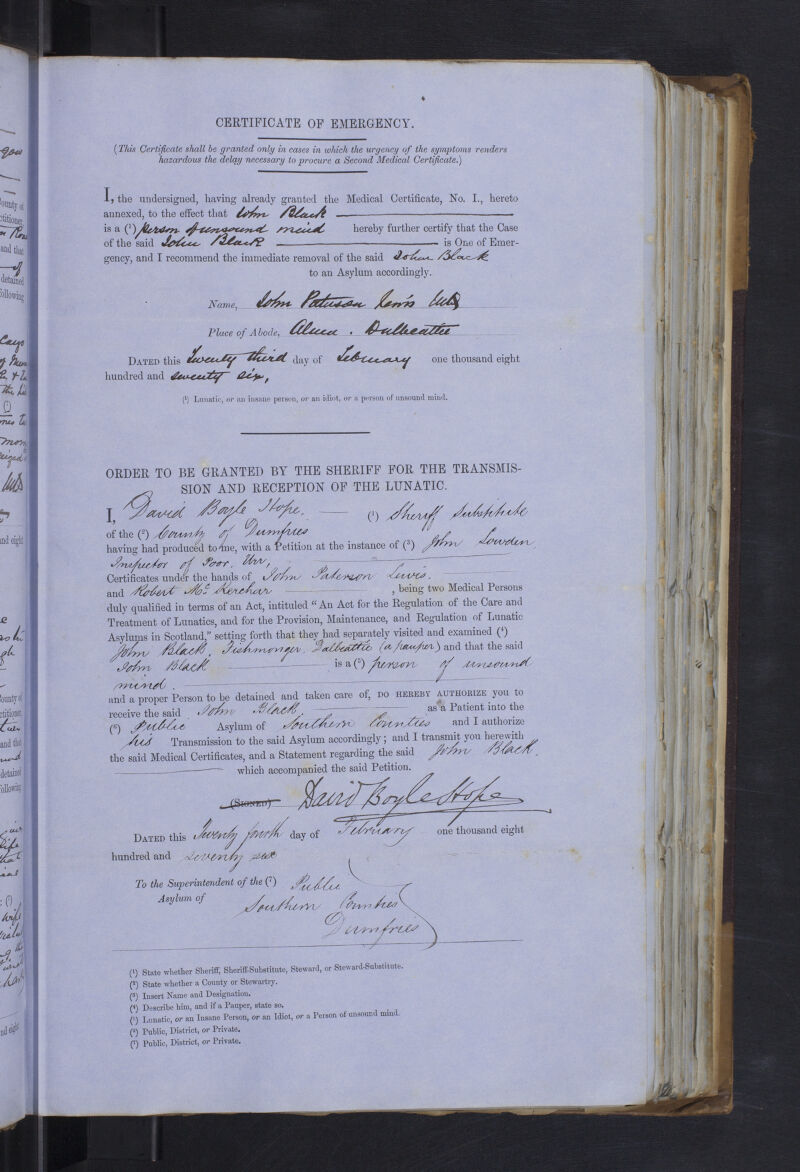 CERTIFICATE OF EMERGENCY.
(This Certificate shall be granted only in cases in which the urgency of the symptoms renders
hazardous the delay necessary to procure a Second Medical Certificate.)
I, the undersigned, having already granted the Medical Certificate, No. I., hereto
annexed, to the effect that John Black
is a (¹) person of unsound mind hereby further certify that the Case
of the said John Black is One of Emer-
gency, and I recommend the immediate removal of the said John Black
to an Asylum accordingly.
Name, John Paterson Lewis
Place of Abode, Alma. Dalbeattie
DATED this Twenty third day of February one thousand eight
hundred and seventy six,
(¹) Lunatic, or an insane person, or an idiot, or a person of unsound mind.
ORDER TO BE GRANTED BY THE SHERIFF FOR THE TRANSMIS-
SION AND RECEPTION OF THE LUNATIC.
I, David Boyle Hope. (¹) Sheriff Substitute
of the (²) County of Dumfries
having had produced to me, with a Petition at the instance of (³) John Lowden,
Inspector of Poor, Urr,
Certificates under the hands of John Paterson Lewis.
and Robert McKerchar, being two Medical Persons
duly qualified in terms of an Act, intituled "An Act for the Regulation of the Care and
Treatment of Lunatics, and for the Provision, Maintenance, and Regulation of Lunatic
Asylums in Scotland," setting forth that they had separately visited and examined (⁴)
John Black, Fishmonger, Dalbeattie (a pauper) and that the said
John Black is a (⁵) person of unsound
mind.
and a proper Person to be detained and taken care of, DO HEREBY AUTHORIZE you to
receive the said John Black as a Patient into the
(⁶) Public Asylum of Southern Counties and I authorize
his Transmission to the said Asylum accordingly; and I transmit you herewith
the said Medical Certificates, and a Statement regarding the said John Black.
which accompanied the said Petition.
(SIGNED) David Boyle Hope
DATED this Twenty fourth day of February one thousand eight
hundred and seventy six
To the Superintendent of the (⁷) Public
Asylum of Southern Counties
Dumfries
(¹) State whether Sheriff, Sheriff-Substitute, Steward, or Steward-Substitute.
(²) State whether a County or Stewartry.
(³) Insert Name and Designation.
(⁴) Describe him, and if a Pauper, state so.
(⁵) Lunatic, or an Insane Person, or an Idiot, or a Person of unsound mind.
(⁶) Public, District, or Private.
(⁷) Public, District, or Private.